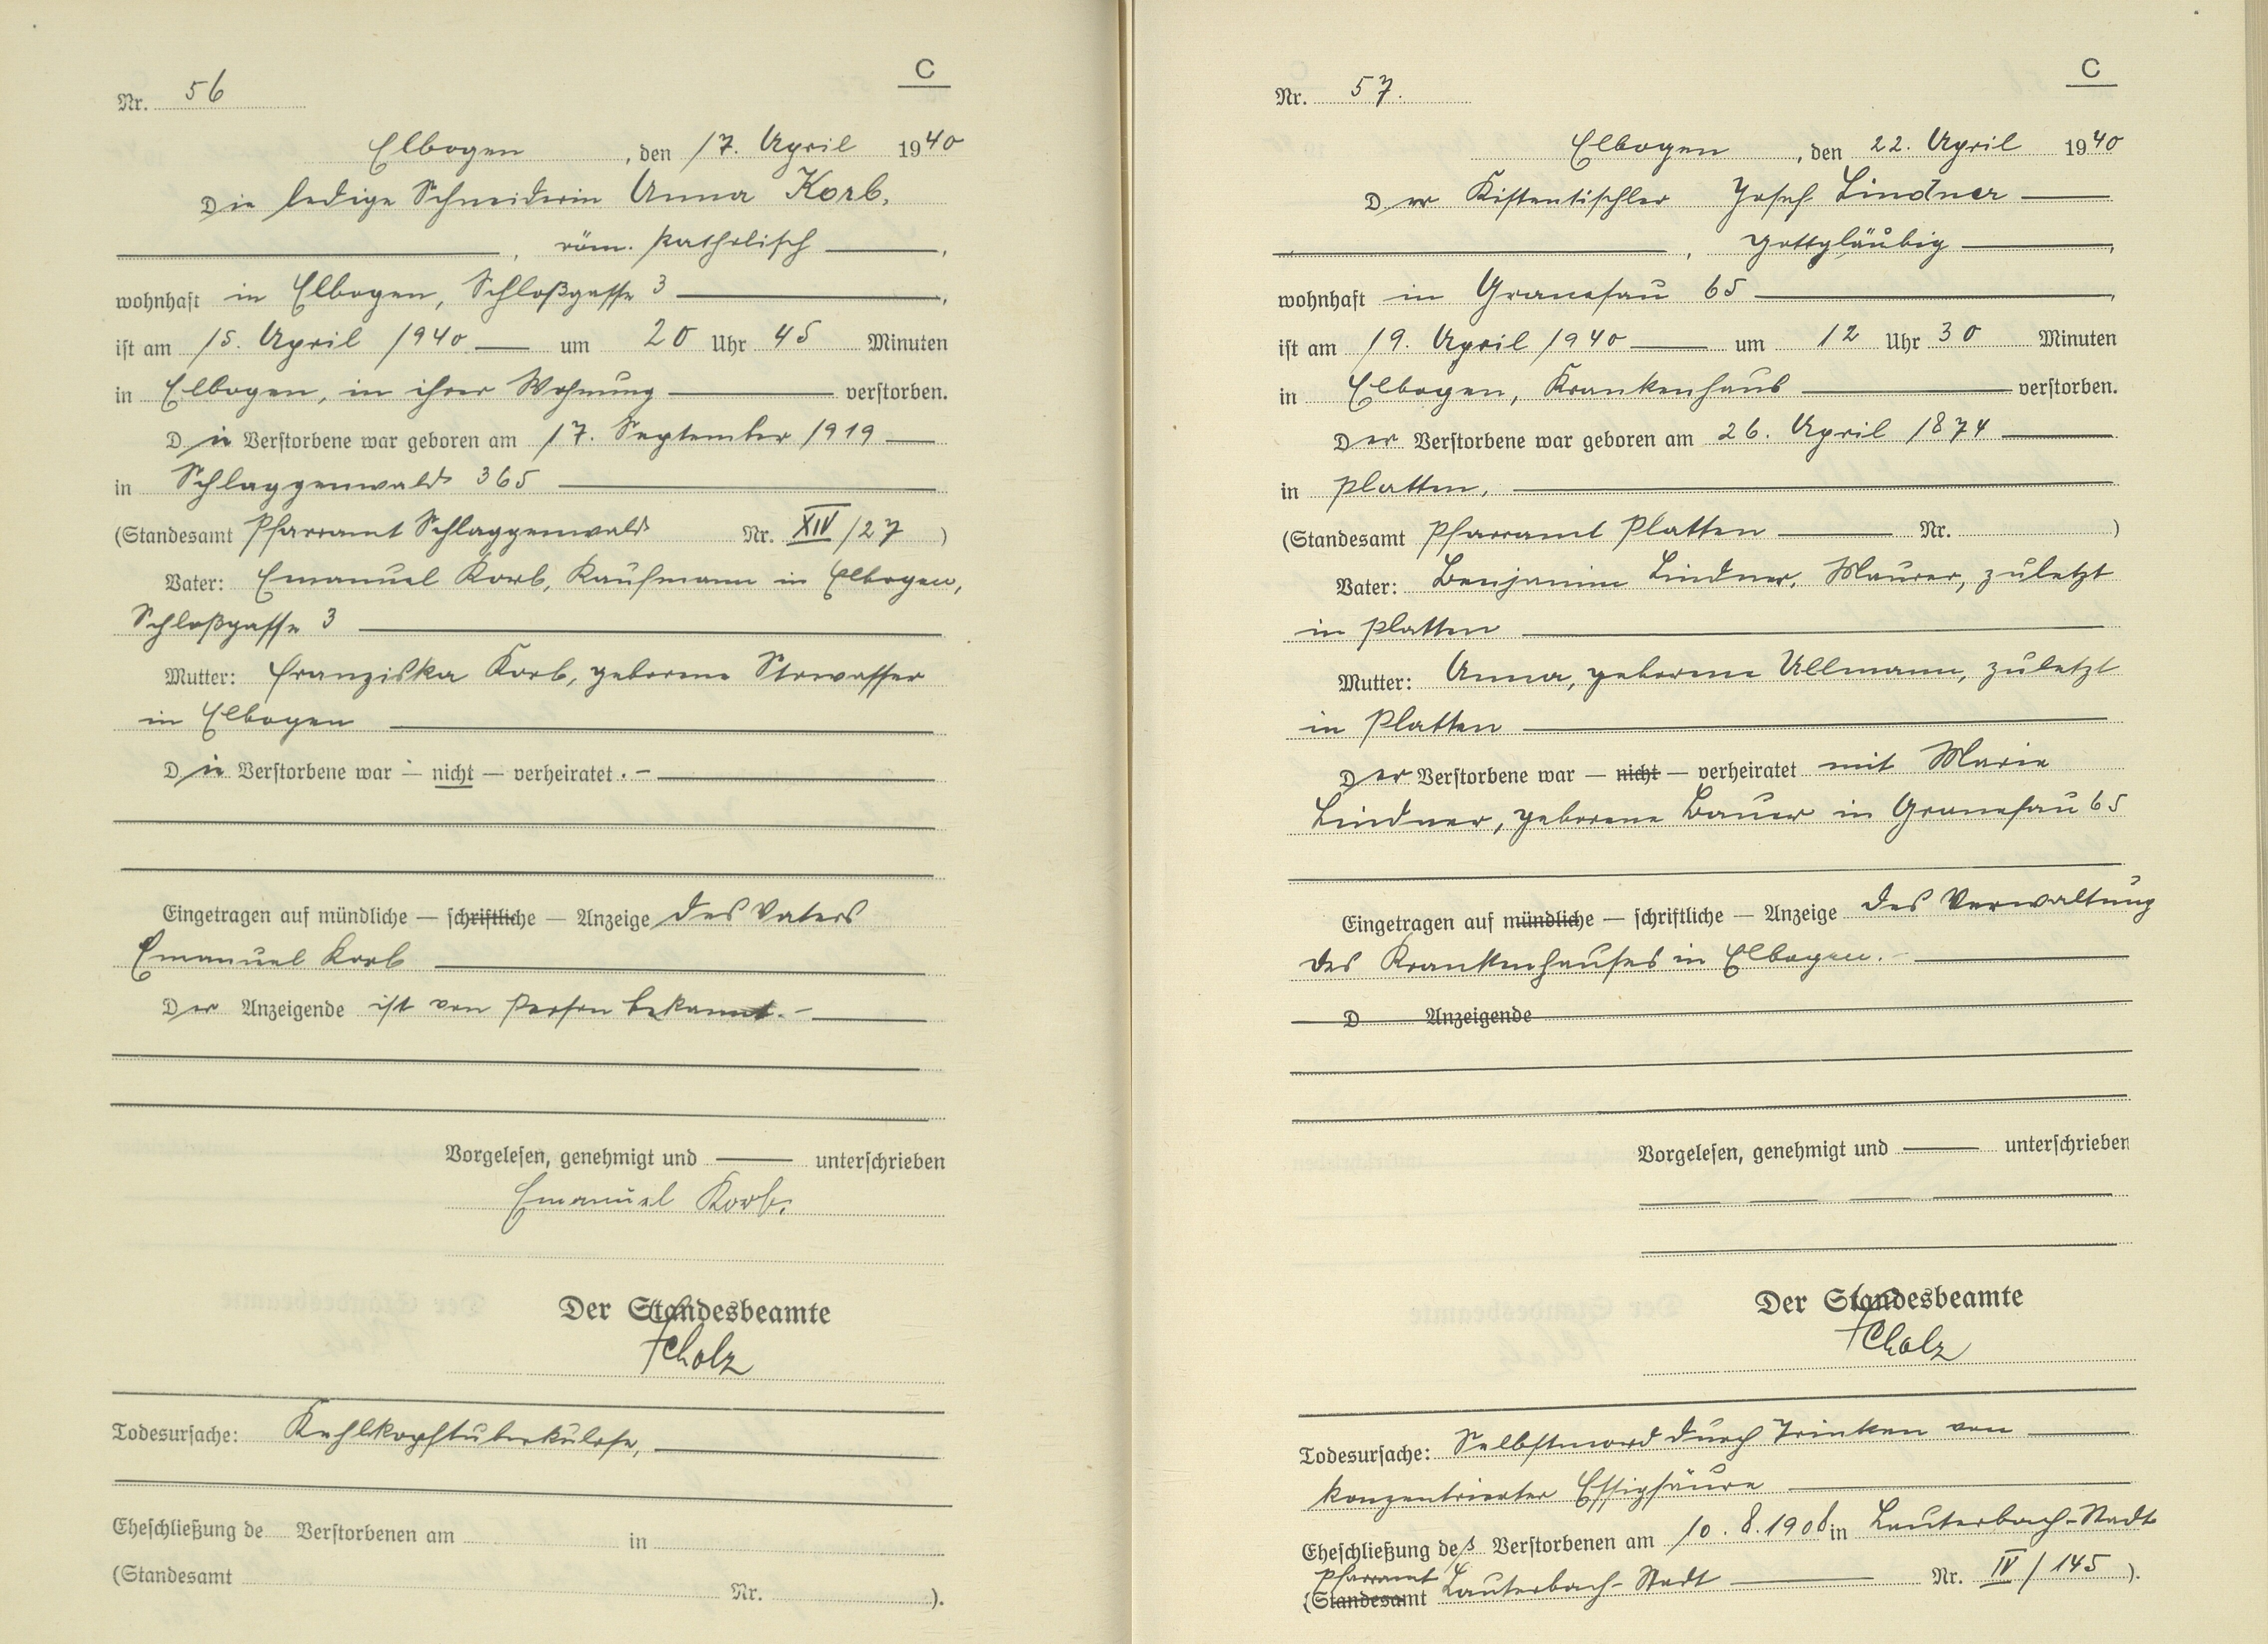 C
Nr. 56
Elbogen, den 17. April 1940
Die ledige Schneiderin Anna Korb,
, röm. katholisch,
wohnhaft in Elbogen, Schloßgasse 3,
ist am 15. April 1940 um 20 Uhr 45 Minuten
in Elbogen, in ihrer Wohnung verstorben.
Die Verstorbene war geboren am 17. September 1919
in Schlaggenwald 365
(Standesamt Pfarramt Schlaggenwald Nr. XIV/27 )
Vater: Emanuel Korb, Kaufmann in Elbogen,
Schloßgasse 3
Mutter: Franziska Korb, geborene Stowasser
in Elbogen
Die Verstorbene war — nicht — verheiratet.-
Eingetragen auf mündliche — schriftliche — Anzeige des Vaters
Emanuel Korb
Der Anzeigende ist von Person bekannt.-
Vorgelesen, genehmigt und unterschrieben
Emanuel Korb.
Der Standesbeamte
Scholz
Todesursache: Kehlkopftuberkulose,
Eheschließung de Verstorbenen am in
(Standesamt Nr. ).
C
Nr. 57.
Elbogen, den 22. April 1940
Der Kistentischler Josef Lindner
, gottgläubig,
wohnhaft in Granesau 65,
ist am 19. April 1940 um 12 Uhr 30 Minuten
in Elbogen, Krankenhaus verstorben.
Der Verstorbene war geboren am 26. April 1874
in Platten,
(Standesamt Pfarramt Platten Nr. )
Vater: Benjamin Lindner, Maurer, zuletzt
in Platten
Mutter: Anna, geborene Ullmann, zuletzt
in Platten
Der Verstorbene war — nicht — verheiratet mit Marie
Lindner, geborene Bauer in Granesau 65
Eingetragen auf mündliche — schriftliche — Anzeige des Verwaltung
des Krankenhauses in Elbogen.-
D Anzeigende
Vorgelesen, genehmigt und unterschrieben
Der Standesbeamte
Scholz
Todesursache: Selbstmord durch Trinken von
konzentrierter Essigsäure
Eheschließung des Verstorbenen am 10. 8. 1908 in Lauterbach-Stadt
Pfarramt
(Standesamt Lauterbach-Stadt Nr. IV/145 ).